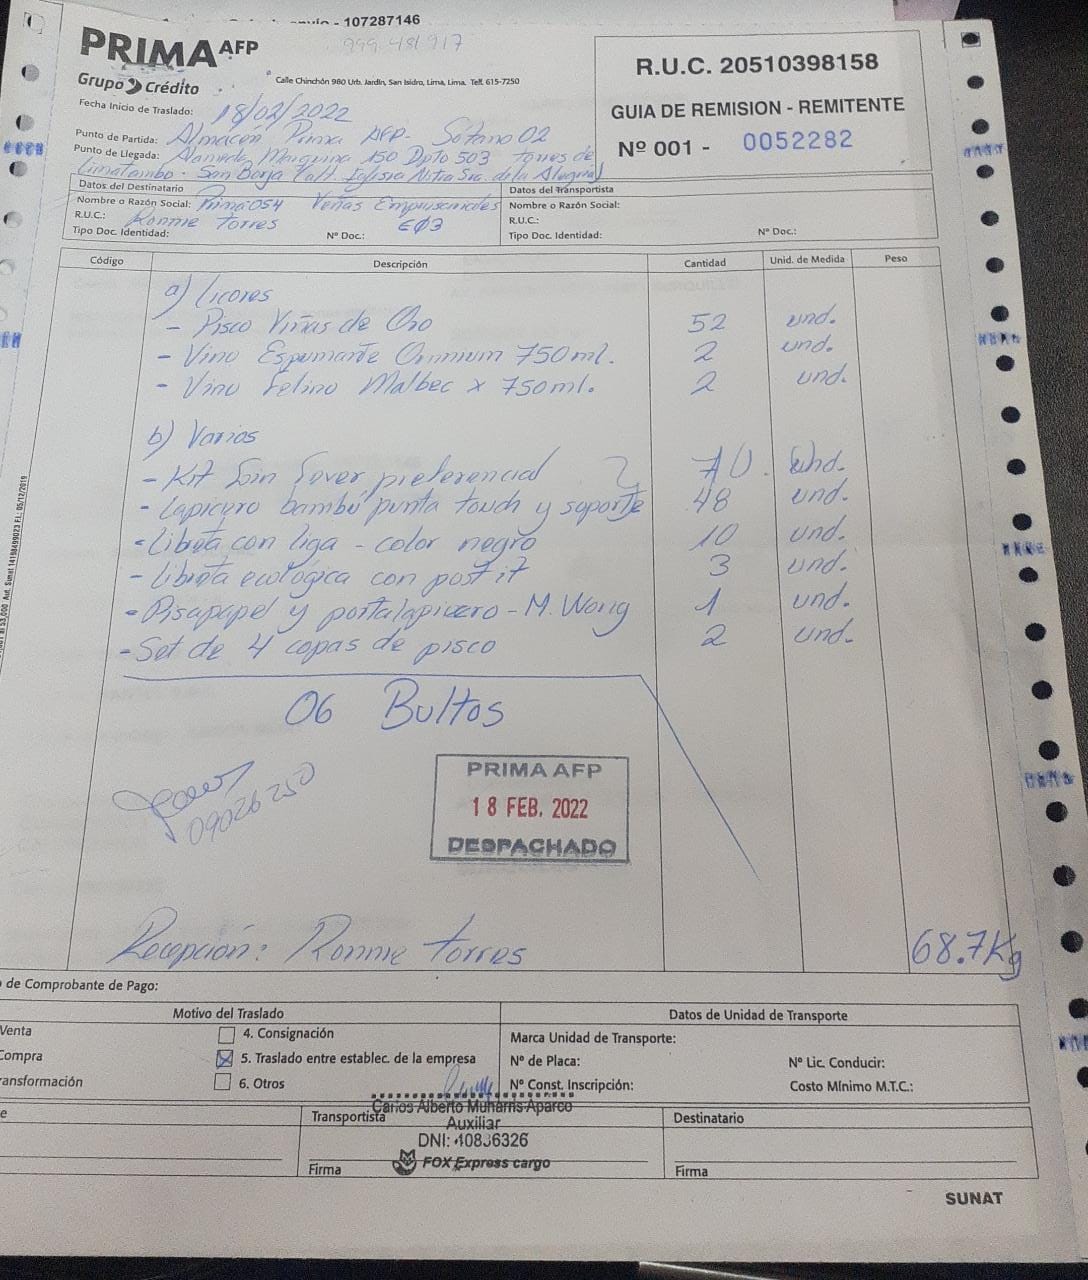 envío - 107287146
PRIMA AFP
999 481 917
Grupo Crédito
Calle Chinchón 980 Urb. Jardín, San Isidro, Lima, Lima. Telf. 615-7250
R.U.C. 20510398158
GUIA DE REMISION - REMITENTE
Nº 001 - 0052282
Fecha Inicio de Traslado: 18/02/2022
Punto de Partida: Almacén Prima AFP - Sótano 02
Punto de Llegada: Alameda 150 Dpto 503 torres de
Limatambo - San Borja Iglesia Ntra Sra. de la Alegría
Datos del Destinatario
Datos del Transportista
Nombre o Razón Social: Prima 054
Nombre o Razón Social:
R.U.C.: Ronnie Torres
R.U.C.:
Tipo Doc. Identidad: Nº Doc.: E03
Tipo Doc. Identidad: Nº Doc.:
Código Descripción Cantidad Unid. de Medida Peso
a) Licores
- Pisco Viñas de Oro 52 und.
- Vino Espumante 750 ml. 2 und.
- Vino Felino Malbec x 750 ml. 2 und.
b) Varios
- Kit preferencial 70. und.
- Lapicero bambú punta touch y soporte 48 und.
- Libreta con liga - color negro 10 und.
- Libreta ecológica con post it 3 und.
- Pisapapel y portalapicero - M. Wong 1 und.
- Set de 4 copas de pisco 2 und.
06 Bultos
09026250
PRIMA AFP
18 FEB. 2022
DESPACHADO
Recepción: Ronnie Torres
68.7Kg
Aut. Sunat 14198499023 F.I.: 05/12/2019
de Comprobante de Pago:
Motivo del Traslado
Datos de Unidad de Transporte
Venta
4. Consignación
Marca Unidad de Transporte:
Compra
5. Traslado entre establec. de la empresa
Nº de Placa: Nº Lic. Conducir:
ansformación
6. Otros
Nº Const. Inscripción: Costo Mínimo M.T.C.:
Transportista
Destinatario
Carlos Alberto Muñarris Aparco
Auxiliar
DNI: 40836326
FOX Express cargo
Firma
Firma
SUNAT